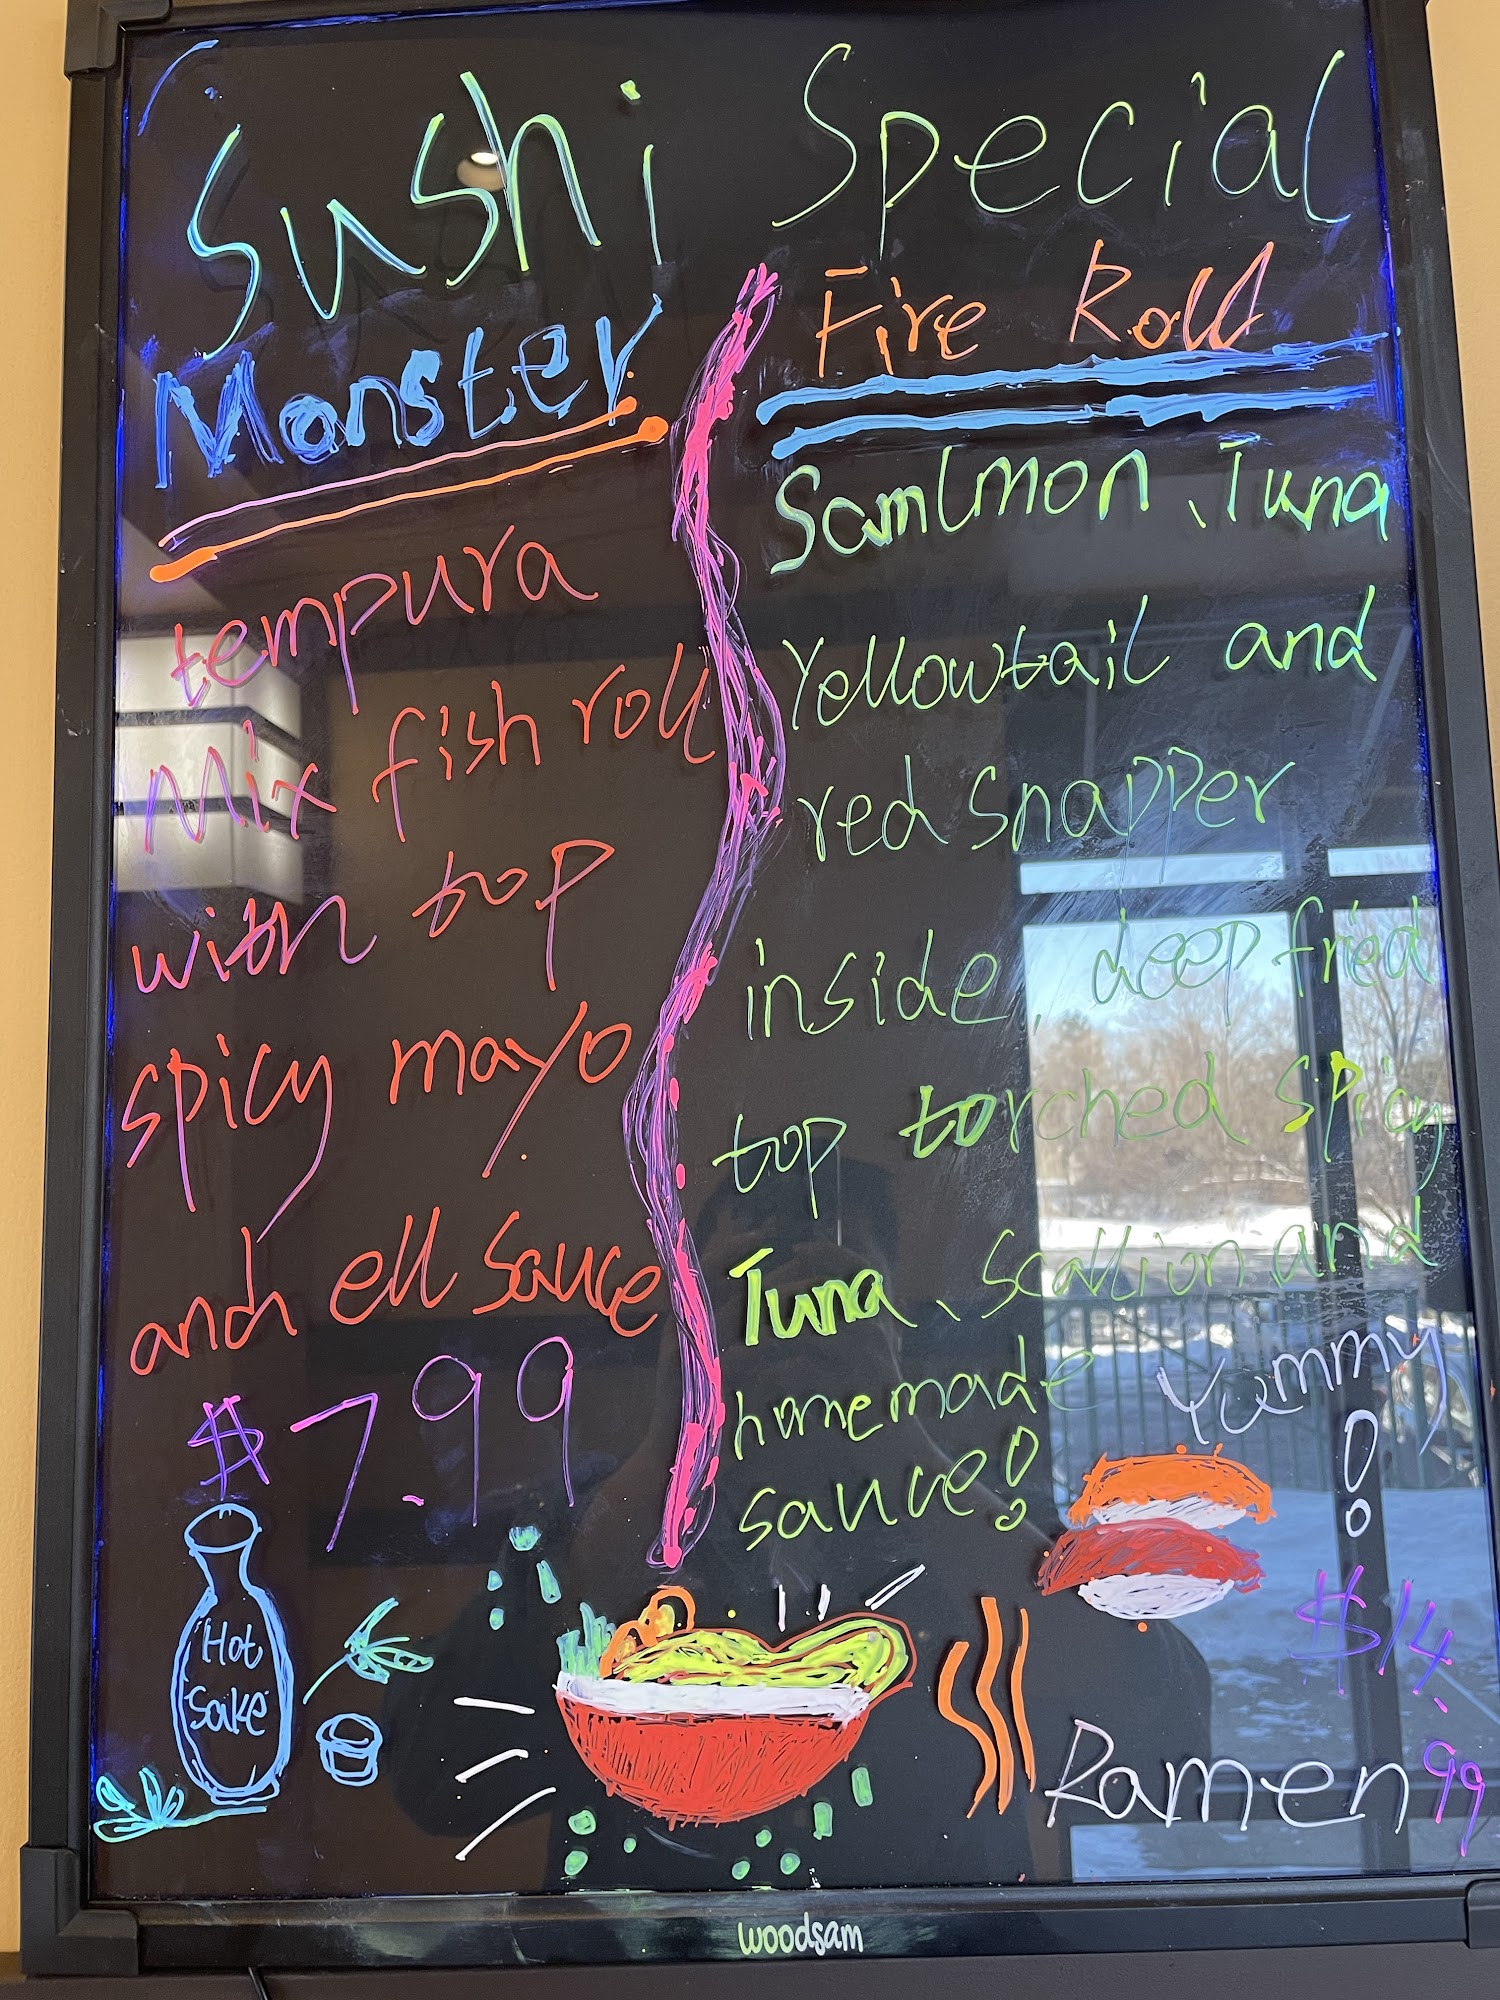 Sushi Special
Monster
tempura
Mix fish roll
with top
spicy mayo
and ell sauce
$7.99
Fire Roll
Samlmon、Tuna
Yellowtail and
red snapper
inside, deep fried
top torched spicy
Tuna、scallion and
homemade
sauce!
Yummy!
$14.99
Hot
Sake
Ramen
woodsam